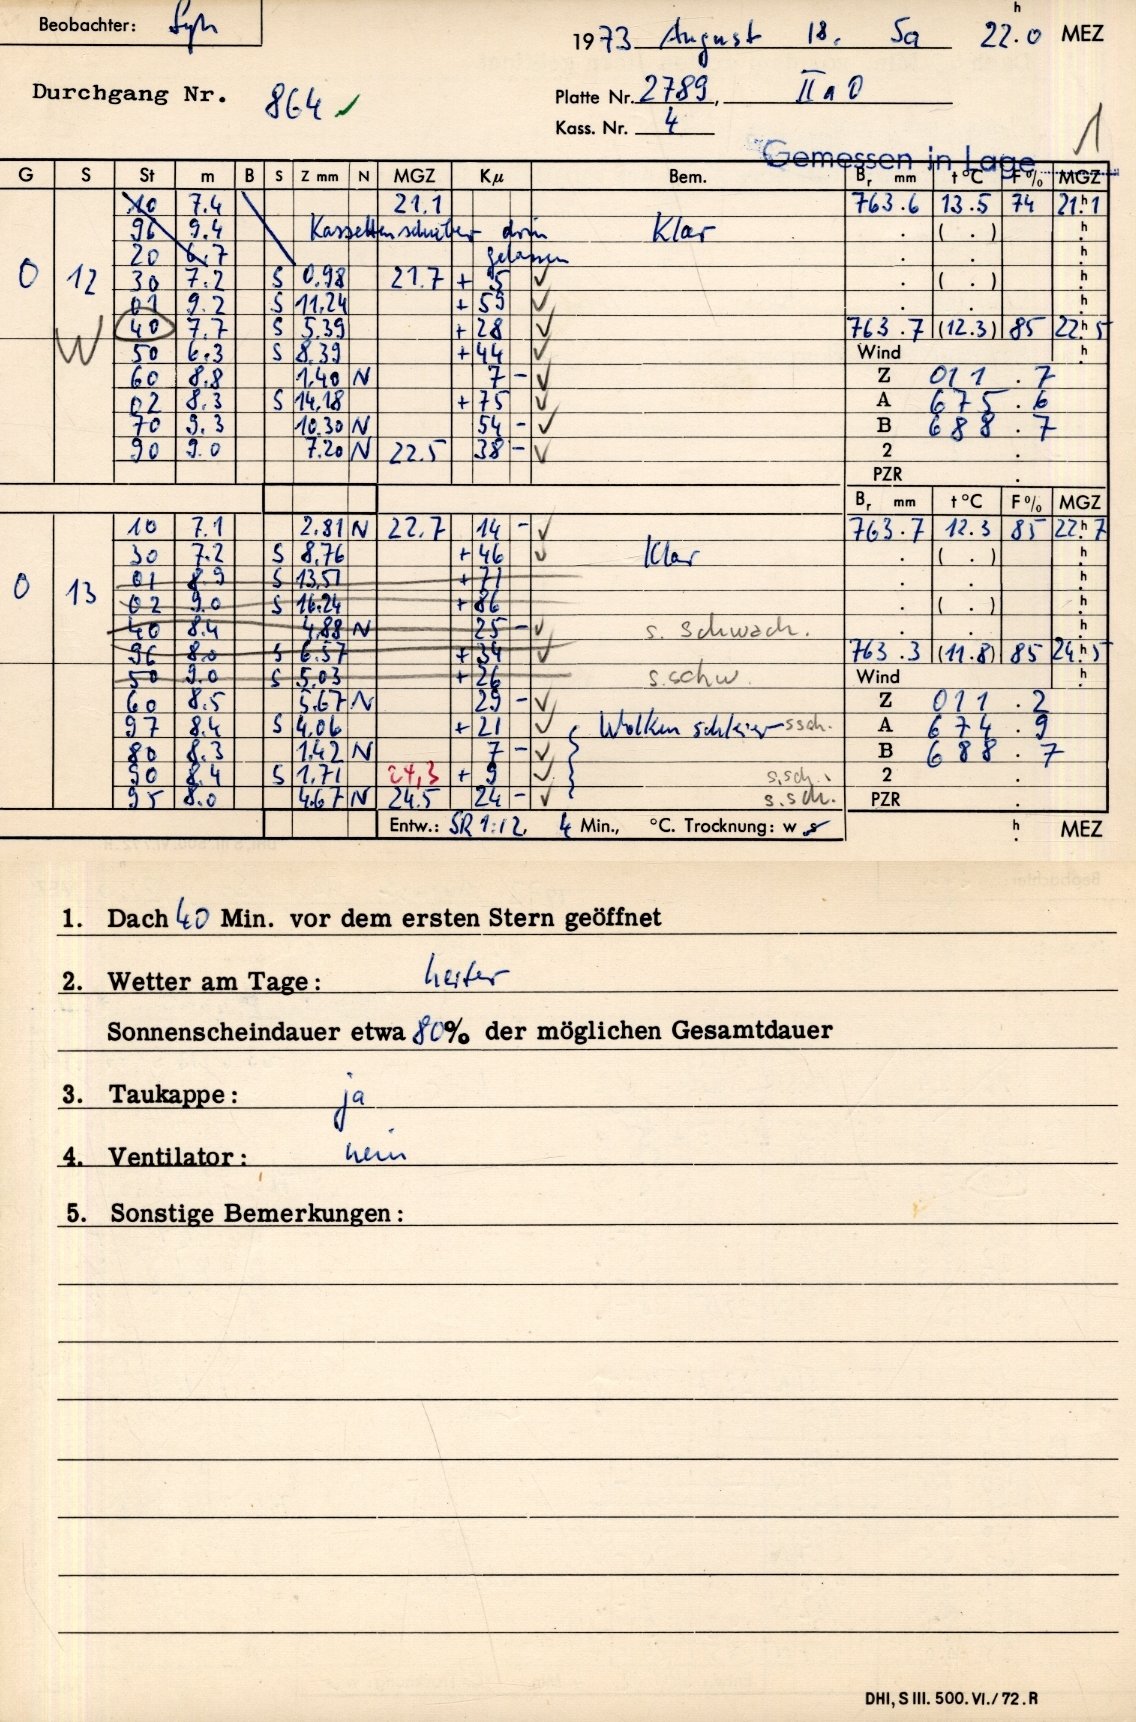 Beobachter:
1973 August 18. Sa 22.0 h MEZ
Durchgang Nr. 864 ✓
Platte Nr. 2789, II a O
Kass. Nr. 4
1
Gemessen in Lage
G S St m B S Z mm N MGZ Kμ Bem. Br mm t °C F % MGZ
10 7.4 21.1 763.6 13.5 74 21h1
96 9.4 Kassettenschieber drin Klar . ( . ) h
20 6.7 gelassen . . h
0 12 30 7.2 S 0.98 21.7 + 5 ✓ . ( . ) h
01 9.2 S 11.24 + 59 ✓ . . h
W 40 7.7 S 5.39 + 28 ✓ 763.7 (12.3) 85 22h5
50 6.3 S 8.39 + 44 ✓ Wind h
60 8.8 1.40 N 7 - ✓ Z 011.7
02 8.3 S 14.18 + 75 ✓ A 675.6
70 9.3 10.30 N 54 - ✓ B 688.7
90 9.0 7.20 N 22.5 38 - ✓ 2 .
PZR .
Br mm t °C F % MGZ
10 7.1 2.81 N 22.7 14 - ✓ 763.7 12.3 85 22h7
30 7.2 S 8.76 + 46 ✓ Klar . ( . ) h
0 13 01 8.9 S 13.51 + 71 . . h
02 9.0 S 16.24 + 86 . ( . ) h
40 8.4 4.88 N 25 - ✓ s. schwach. . . h
96 8.0 S 6.57 + 34 ✓ 763.3 (11.8) 85 24h5
50 9.0 S 5.03 + 26 s.schw. Wind h
60 8.5 5.67 N 29 - ✓ Z 011.2
97 8.4 S 4.06 + 21 ✓ Wolkenschleier ssch. A 674.9
80 8.3 1.42 N 7 - ✓ B 688.7
90 8.4 S 1.71 24,3 + 9 ✓ s.sch. 2 .
95 8.0 4.67 N 24.5 24 - ✓ s.sch. PZR .
Entw.: SR 1:12, 4 Min., °C. Trocknung: w s h MEZ
1. Dach 40 Min. vor dem ersten Stern geöffnet
2. Wetter am Tage: heiter
Sonnenscheindauer etwa 80% der möglichen Gesamtdauer
3. Taukappe: ja
4. Ventilator: nein
5. Sonstige Bemerkungen:
DHI, S III. 500. VI./72. R